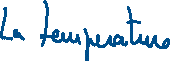 La temperatura